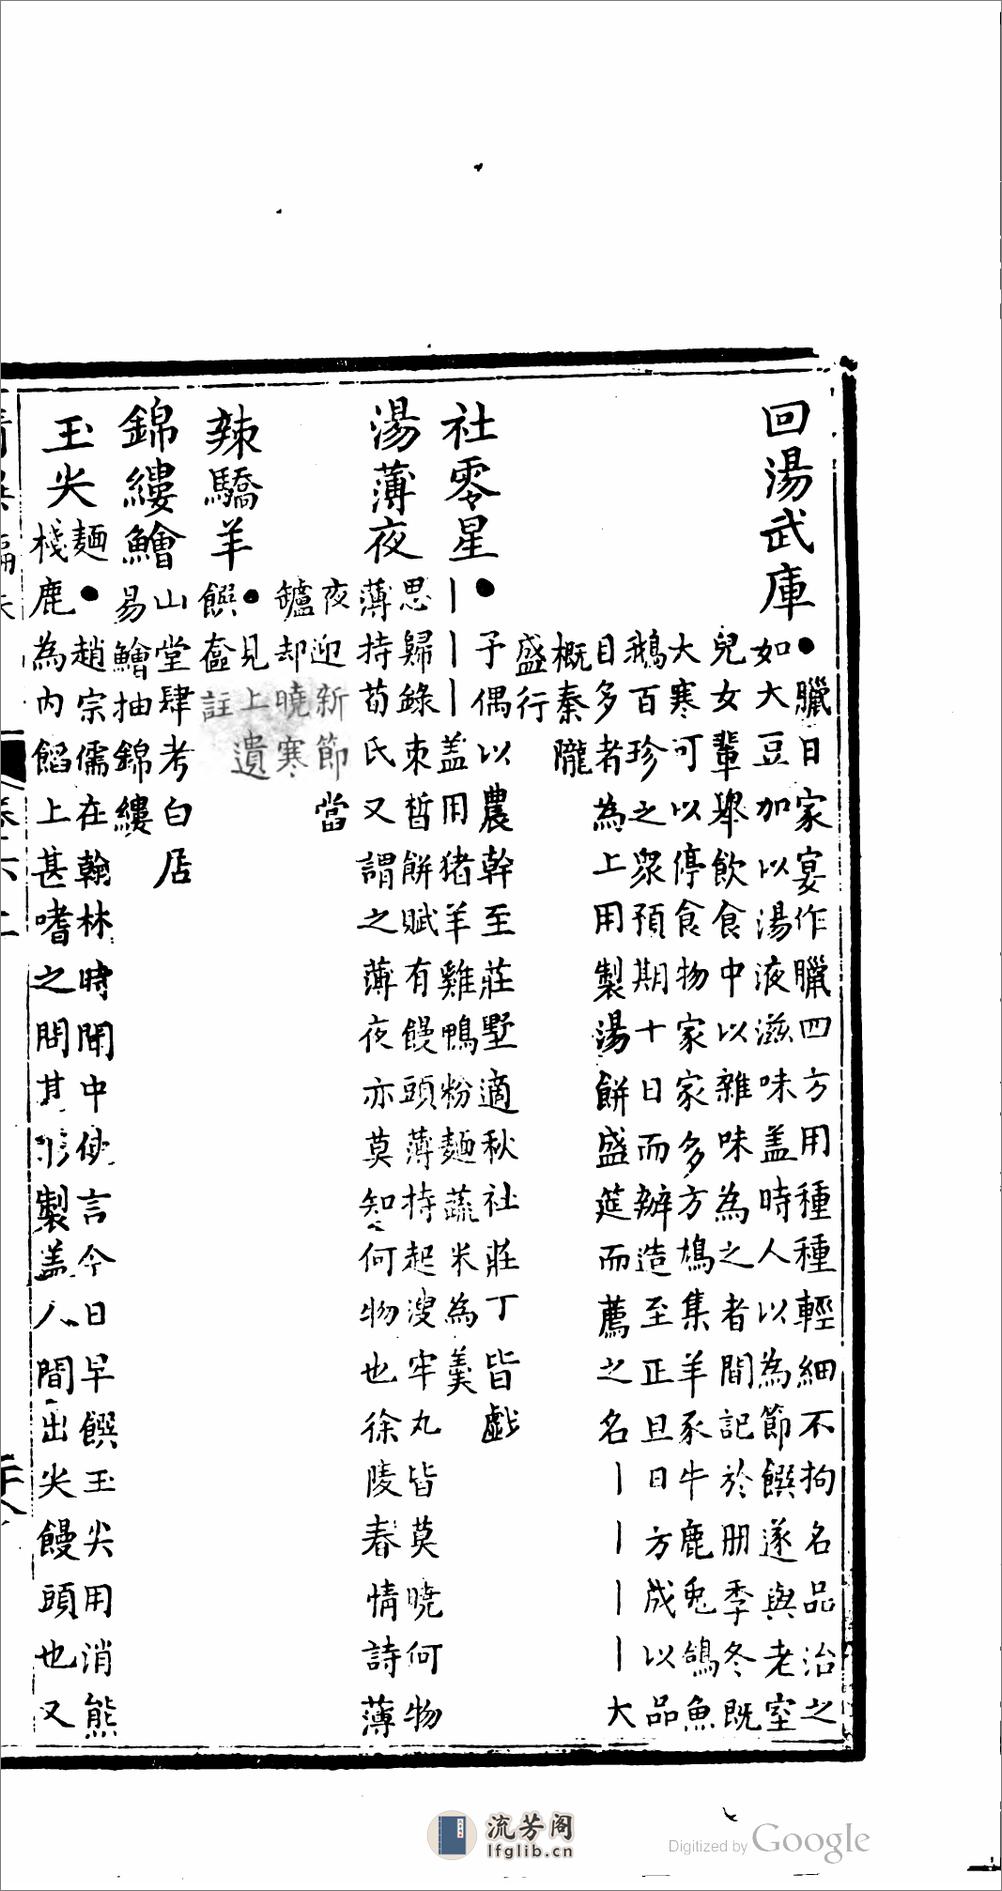 回湯武庫
●臘日家宴作臘四方用種種輕細不拘名品治之
如大豆加以湯液滋味盖時人以為節饌遂與老室
兒女輩舉飲食中以雜味為之者間記於册季冬既
大寒可以停食物家家多方鳩集羊豕牛鹿兎鴿魚
鵝百珍之衆預期十日而辦造至正旦日方成以品
目多者為上用製湯餅盛筵而薦之名丨丨丨丨大
概秦隴
盛行
社零星
●予偶以農幹至莊墅適秋社莊丁皆戯
丨丨丨盖用猪羊雞鴨粉麵蔬米為羹
湯薄夜
思歸錄束晳餅賦有饅頭薄持起溲牢丸皆莫曉何物
薄持荀氏又謂之薄夜亦莫知何物也徐陵春情詩薄
夜迎新節當
鑪却曉寒
辣驕羊
●見上遺
饌盦註
錦縷鱠
山堂肆考白居
易鱠抽錦縷
玉尖麵
●趙宗儒在翰林時聞中使言今日早饌玉尖用消熊
棧鹿為内餡上甚嗜之問其形製盖人間出尖饅頭也又
卷六上
流芳阁
lfglib.cn
Digitized by Google